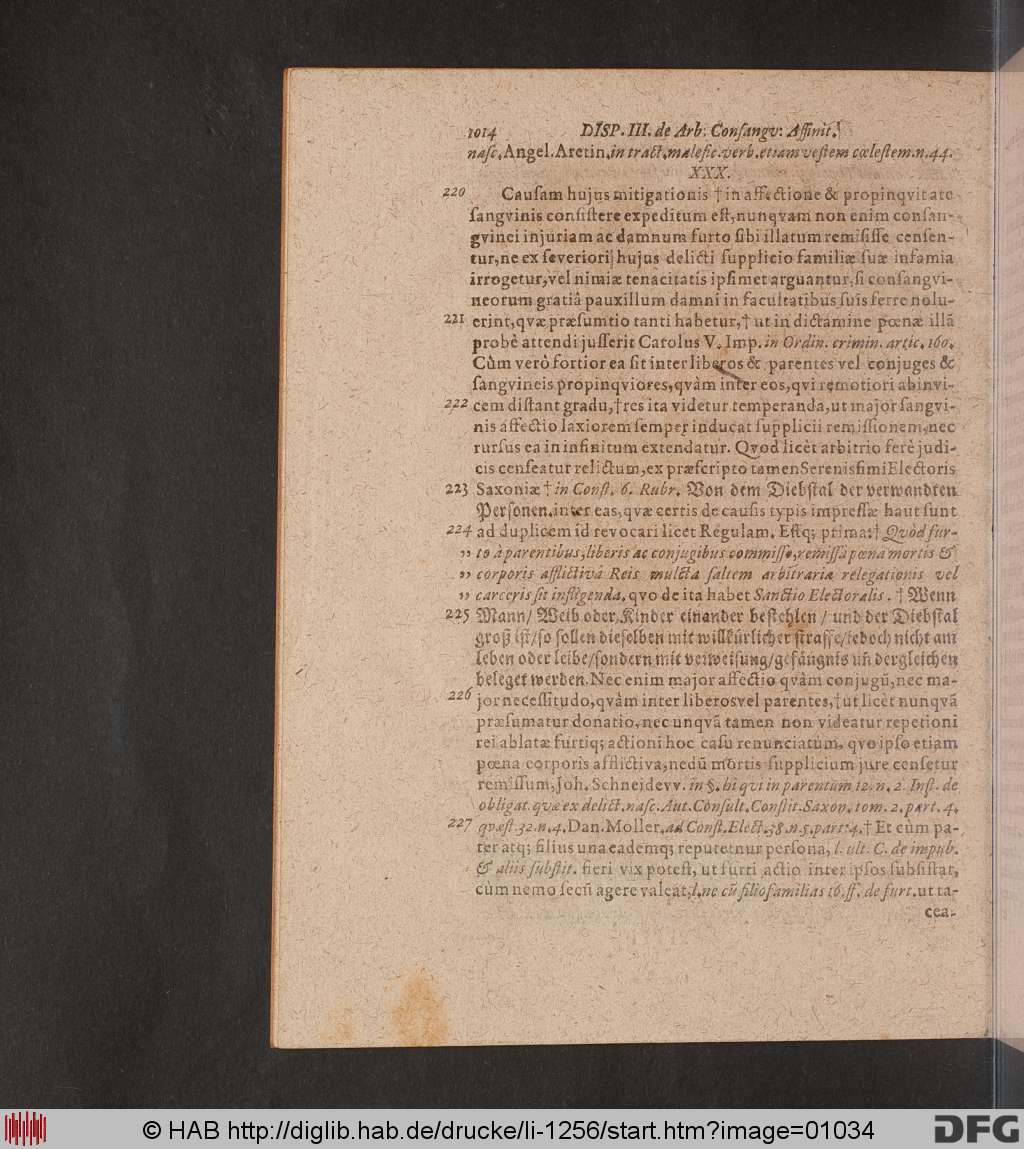 1014 DISP. III. de Arb: Consangv: Affinit.
nasc. Angel. Aretin. in tract. malefic. verb. etiam vestem cœlestem. n. 44.
XXX.
220 Causam hujus mitigationis † in affectione & propinqvitate
sangvinis consistere expeditum est, nunqvam non enim consan-
gvinei injuriam ac damnum furto sibi illatum remisisse censen-
tur, ne ex severiori hujus delicti supplicio familiæ suæ infamia
irrogetur, vel nimiæ tenacitatis ipsimet arguantur, si consangvi-
neorum gratiâ pauxillum damni in facultatibus suis ferre nolu-
221 erint, qvæ præsumtio tanti habetur, † ut in dictamine pœnæ illã
probè attendi jusserit Carolus V. Imp. in Ordin. crimin. artic. 160.
Cùm verò fortior ea sit inter liberos & parentes vel conjuges &
sangvineis propinqviores, qvàm inter eos, qvi remotiori abinvi-
222 cem distant gradu, † res ita videtur temperanda, ut major sangvi-
nis affectio laxiorem semper inducat supplicii remissionem, nec
rursus ea in infinitum extendatur. Qvod licèt arbitrio ferè judi-
cis censeatur relictum, ex præscripto tamen Serenissimi Electoris
223 Saxoniæ † in Const. 6. Rubr. Von dem Diebstal der verwandten
Personen. inter eas, qvæ certis de causis typis impressæ haut sunt
224 ad duplicem id revocari licet Regulam. Estq; prima: † Qvòd fur-
„ to à parentibus, liberis ac conjugibus commisso, remissâ pœnâ mortis &
„ corporis afflictivâ Reis mulcta saltem arbitraria relegationis vel
„ carceris sit infligenda. qvo de ita habet Sanctio Electoralis. † Wenn
225 Mann/ Weib oder Kinder einander bestehlen / und der Diebstal
groß ist/ so sollen dieselben mit willkürlicher straffe/ iedoch nicht am
leben oder leibe/ sondern mit verweisung/ gefängnis uñ dergleichen
beleget werden. Nec enim major affectio qvàm conjugũ, nec ma-
226 jor necessitudo, qvàm inter liberos vel parentes, † ut licèt nunqvã
præsumatur donatio, nec unqvã tamen non videatur repetioni
rei ablatæ furtiq; actioni hoc casu renunciatum, qvo ipso etiam
pœna corporis afflictiva, nedũ mortis supplicium jure censetur
remissum, Joh. Schneidevv. in §. hi qvi in parentum 12. n. 2. Inst. de
obligat. qvæ ex delict. nasc. Aut. Consult. Constit. Saxon. tom. 2. part. 4.
227 qvæst. 32. n. 4. Dan. Moller. ad Const. Elect. 38. n. 5. part. 4. † Et cùm pa-
ter atq; filius una eademq; reputetnur persona, l. ult. C. de impub.
& aliis substit. fieri vix potest, ut furti actio inter ipsos subsistat,
cùm nemo secũ agere valeat, l. ne cũ filiofamilias 16. ff. de furt. ut ta-
cea-
© HAB http://diglib.hab.de/drucke/li-1256/start.htm?image=01034
DFG